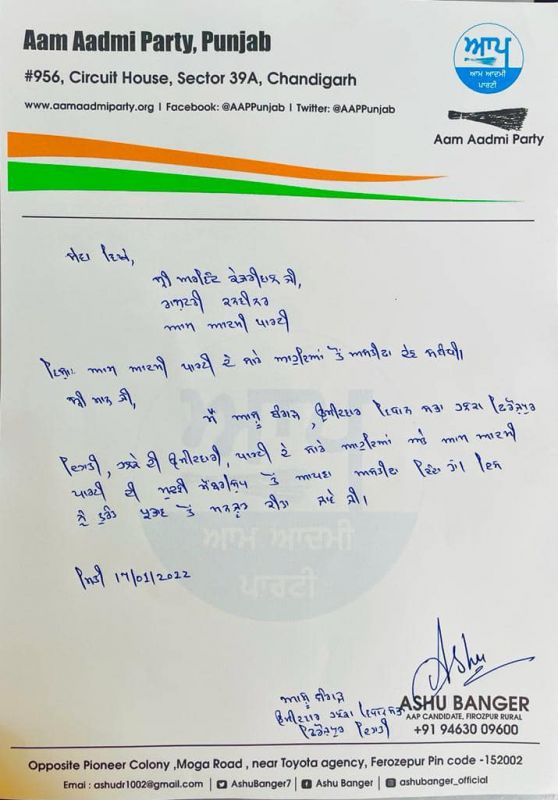 Aam Aadmi Party, Punjab
#956, Circuit House, Sector 39A, Chandigarh
www.aamaadmiparty.org | Facebook: @AAPPunjab | Twitter: @AAPPunjab
ਆਪ
ਆਮ ਆਦਮੀ
ਪਾਰਟੀ
Aam Aadmi Party
ਸੇਵਾ ਵਿਖੇ,
ਸ੍ਰੀ ਅਰਵਿੰਦ ਕੇਜਰੀਵਾਲ ਜੀ,
ਕਨਵੀਨਰ
ਆਮ ਆਦਮੀ ਪਾਰਟੀ
ਵਿਸ਼ਾ: ਆਮ ਆਦਮੀ ਪਾਰਟੀ ਦੇ ਸਾਰੇ ਅਹੁਦਿਆਂ ਤੋਂ ਅਸਤੀਫਾ ਦੇਣ ਸਬੰਧੀ।
ਸ੍ਰੀ ਮਾਨ ਜੀ,
ਮੈਂ ਆਸ਼ੂ ਬੰਗੜ, ਉਮੀਦਵਾਰ ਵਿਧਾਨ ਸਭਾ ਹਲਕਾ ਫਿਰੋਜ਼ਪੁਰ
ਦਿਹਾਤੀ, ਹਲਕੇ ਦੀ ਉਮੀਦਵਾਰੀ, ਪਾਰਟੀ ਦੇ ਸਾਰੇ ਅਹੁਦਿਆਂ ਅਤੇ ਆਮ ਆਦਮੀ
ਪਾਰਟੀ ਦੀ ਮੁਢਲੀ ਮੈਂਬਰਸ਼ਿਪ ਤੋਂ ਆਪਣਾ ਅਸਤੀਫਾ ਦਿੰਦਾ ਹਾਂ। ਇਸ
ਨੂੰ ਤੁਰੰਤ ਤੋਂ ਮਨਜ਼ੂਰ ਕੀਤਾ ਜਾਵੇ ਜੀ।
ਆਪ
ਆਮ ਆਦਮੀ
ਪਾਰਟੀ
ਮਿਤੀ 17/01/2022
Ashu
ਆਸ਼ੂ ਬੰਗੜ
ਉਮੀਦਵਾਰ ਹਲਕਾ ਵਿਧਾਨ ਸਭਾ
ਫਿਰੋਜ਼ਪੁਰ ਦਿਹਾਤੀ
ASHU BANGER
AAP CANDIDATE, FIROZPUR RURAL
+91 94630 09600
Opposite Pioneer Colony ,Moga Road , near Toyota agency, Ferozepur Pin code -152002
Emai : ashudr1002@gmail.com | AshuBanger7 | Ashu Banger | ashubanger_official